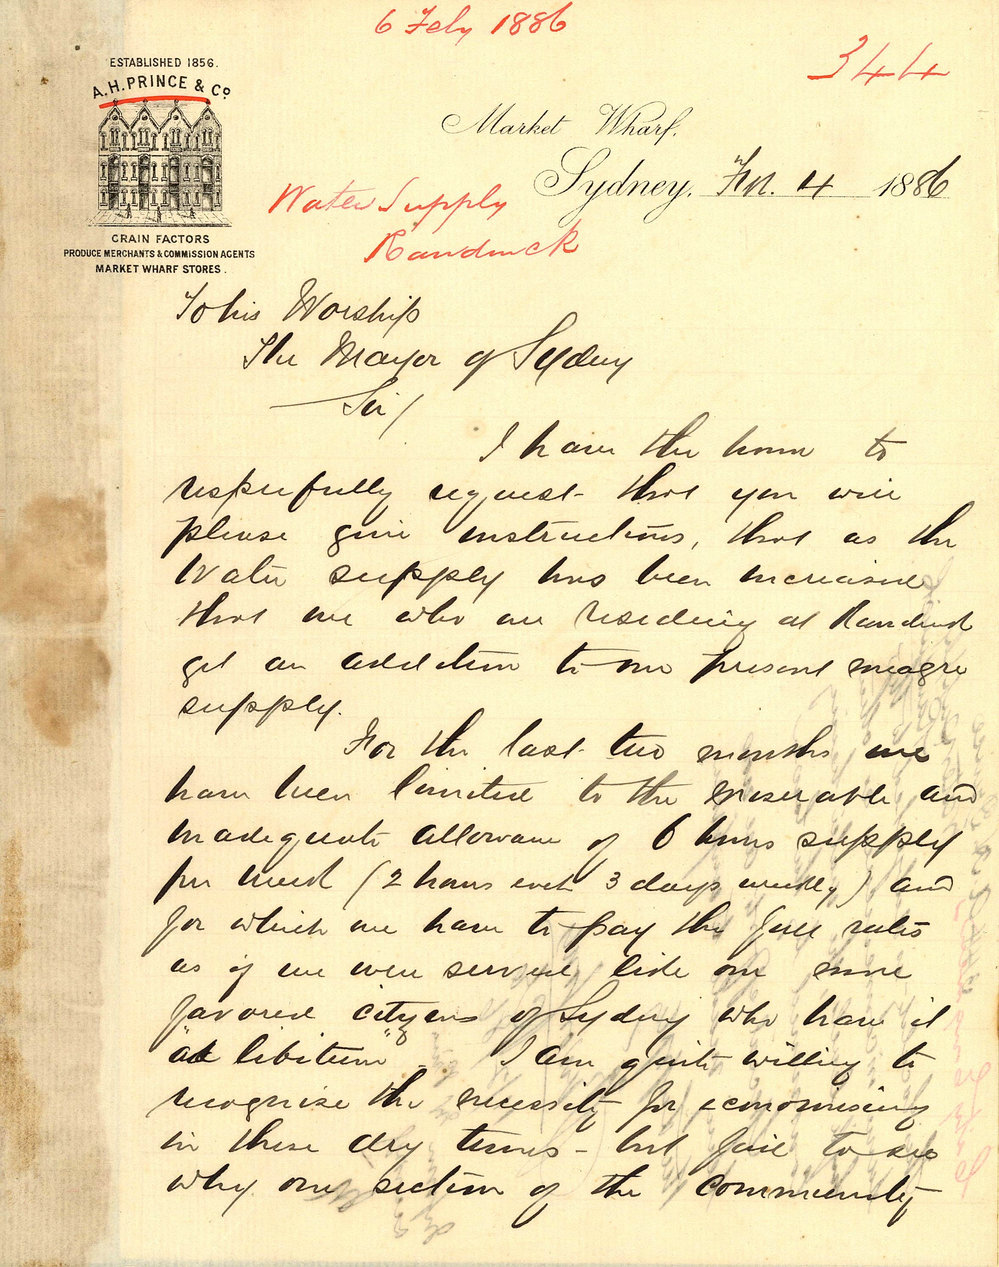 6 Feby 1886
344
ESTABLISHED 1856.
A.H. PRINCE & Co
Market Wharf.
Sydney, Feb. 4 1886
Water Supply
Randwick
GRAIN FACTORS
PRODUCE MERCHANTS & COMMISSION AGENTS
MARKET WHARF STORES.
To his Worship
The Mayor of Sydney
Sir/
I have the honor to
respectfully request that you will
please give instructions, that as the
Water supply has been increased
that we who are residing at Randwick
get an addition to our present meagre
supply.
For the last two months we
have been limited to the miserable and
inadequate allowance of 6 hours supply
per week (2 hours each 3 days weekly) and
for which we have to pay the full rates
as if we were served like our more
favored citizens of Sydney who have it
"ad libitum". I am quite willing to
recognise the necessity for economising
in these dry times - but fail to see
why one section of the community